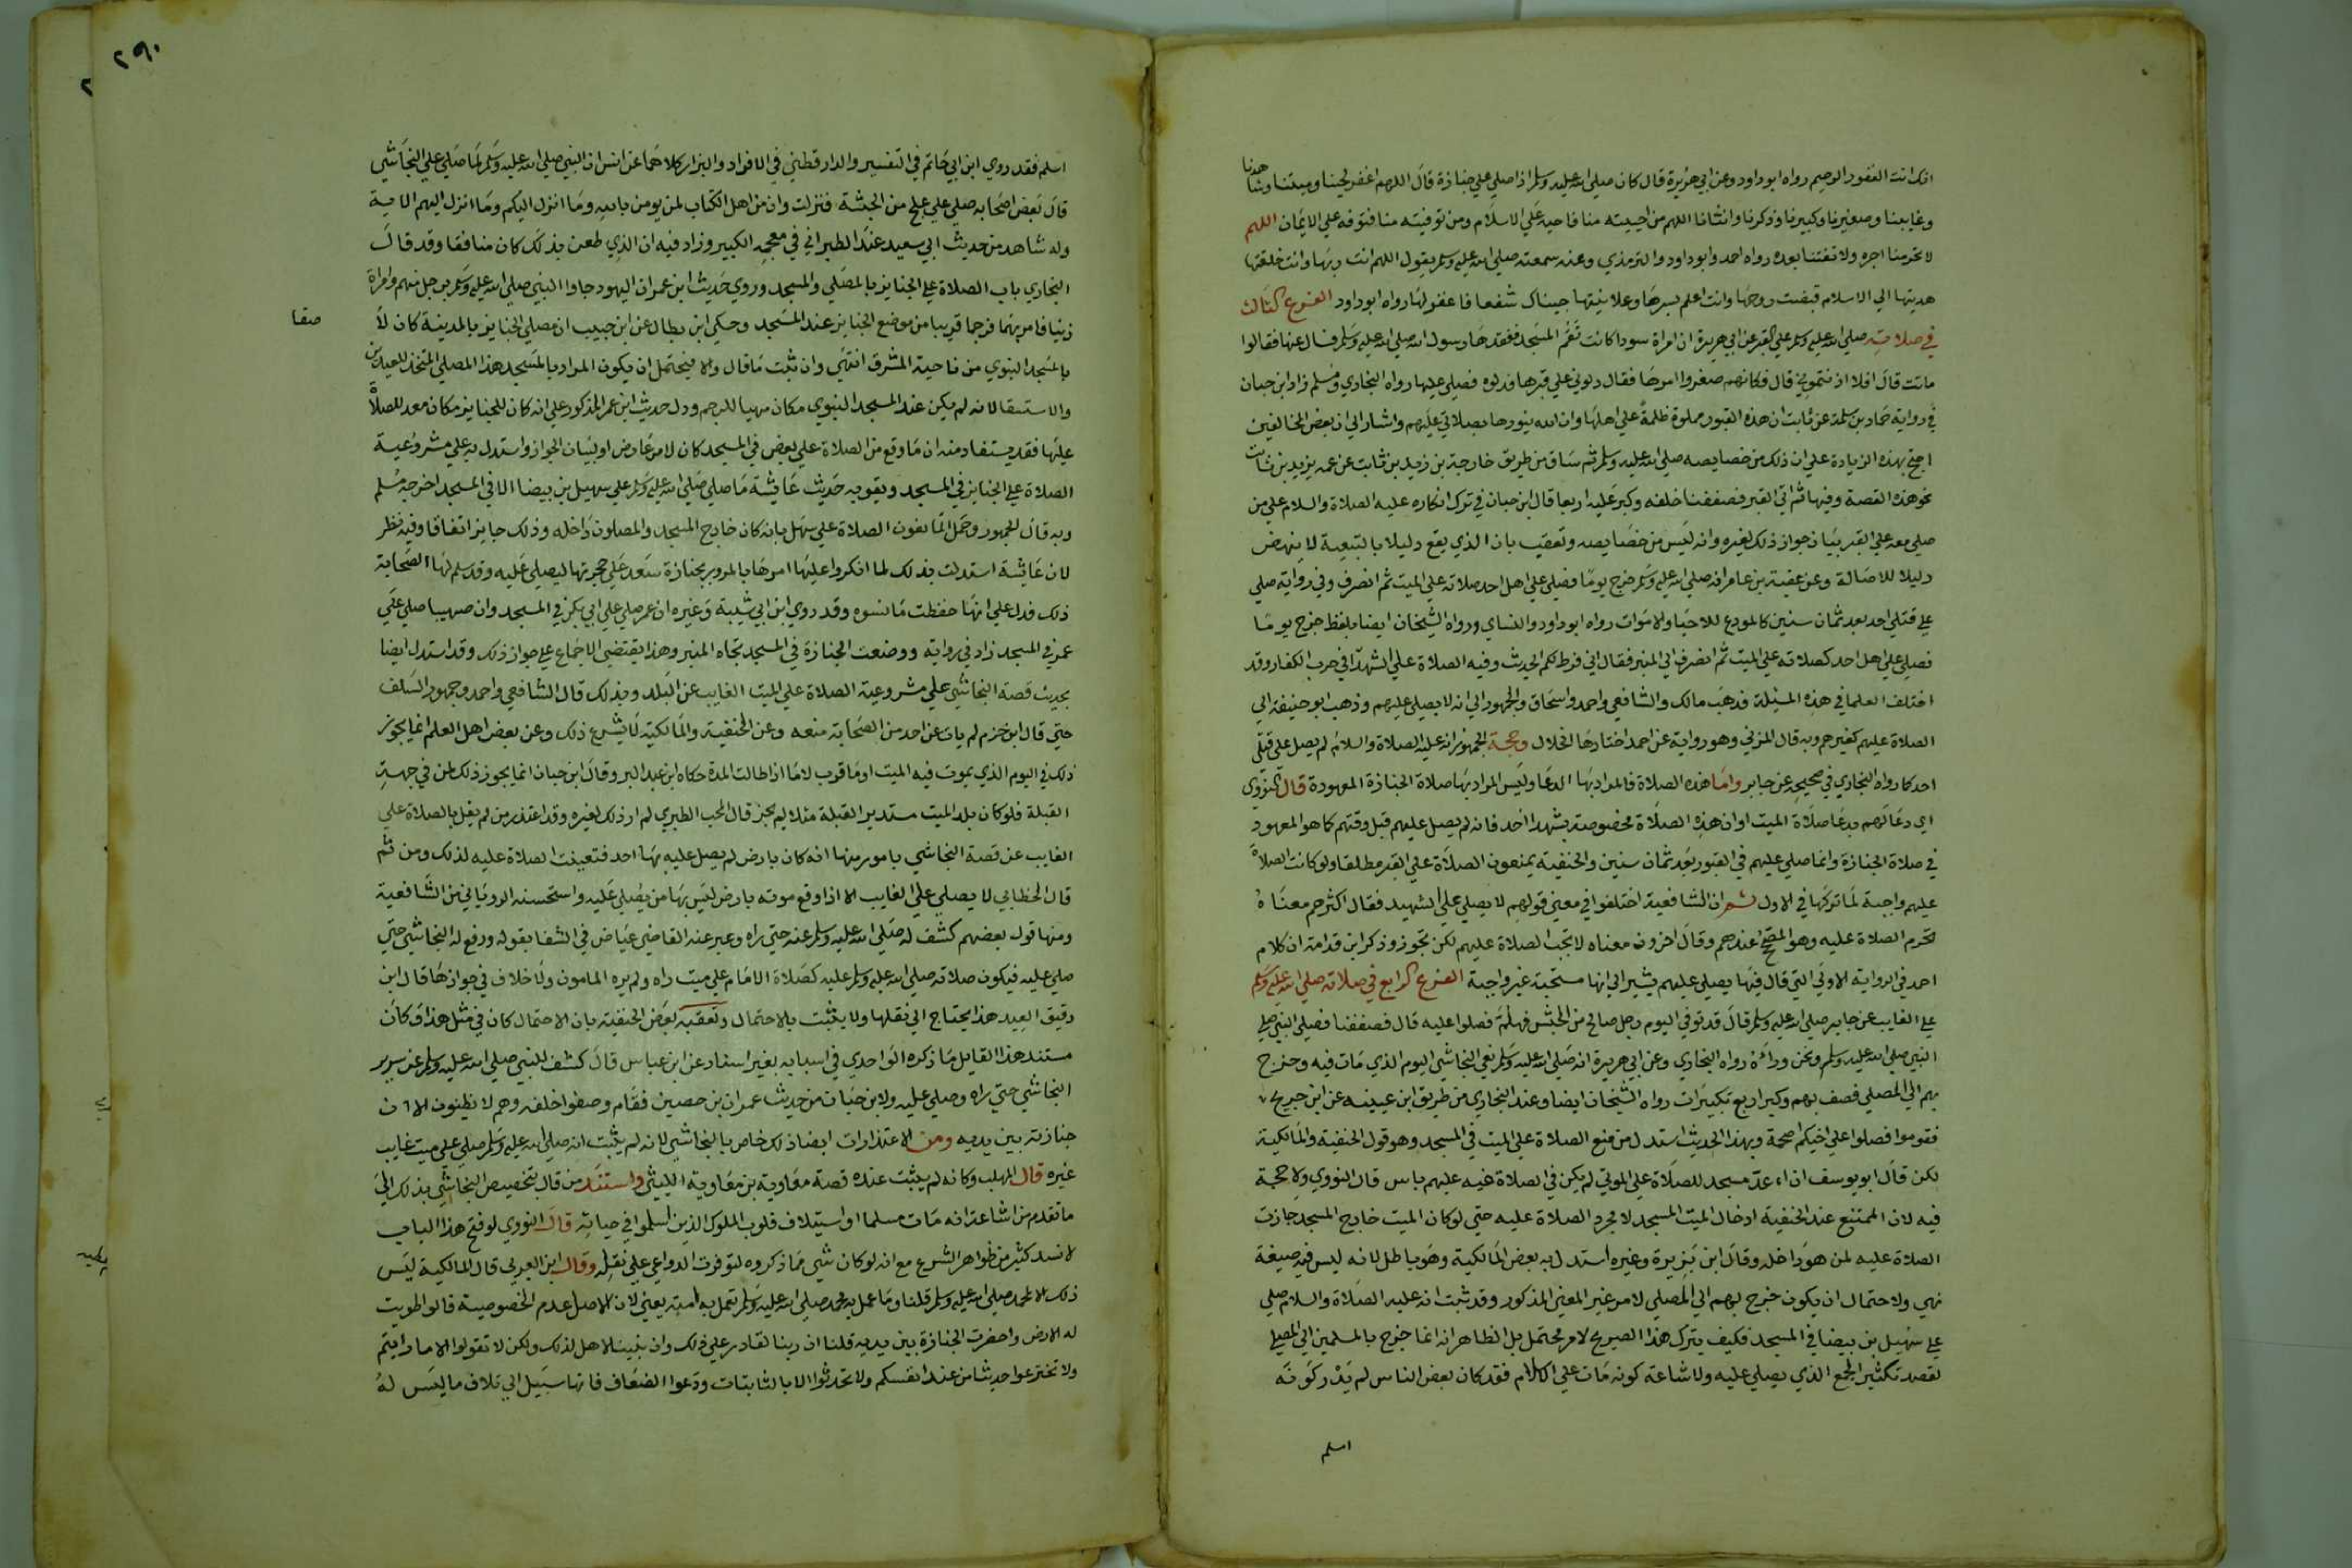 انك انت الغفور الرحيم رواه ابو داود وعن ابي هريرة قال كان صلى الله عليه وسلم اذا صلى على جنازة قال اللهم اغفر لحينا وميتنا وشاهدنا
وغايبنا وصغيرنا وكبيرنا وذكرنا وانثانا اللهم من احييته منا فاحيه على الاسلام ومن توفيته منا فتوفه على الايمان اللهم
لا تحرمنا اجره ولا تفتنا بعده رواه احمد وابو داود والترمذي وعنه سمعته صلى الله عليه وسلم يقول اللهم انت ربها وانت خلقتها
هديتها الى الاسلام قبضت روحها وانت اعلم بسرها وعلانيتها جيناك شفعا فاغفر لها رواه ابو داود الفرع الثالث
في صلاته صلى الله عليه وسلم على القبر عن ابي هريرة ان امراة سودا كانت تقم المسجد ففقدها رسول الله صلى الله عليه وسلم فسال عنها فقالوا
ماتت قال افلا اذنتموني قال فكانهم صغروا امرها فقال دلوني على قبرها فدلوه فصلى عليها رواه البخاري ومسلم زاد ابن حبان
في رواية حماد بن سلمة عن ثابت ان هذه القبور مملوة ظلمة على اهلها وان الله ينورها بصلاتي عليهم واشار الى ان بعض المخالفين
احتج بهذه الزيادة على ان ذلك من خصايصه صلى الله عليه وسلم ثم ساق من طريق خارجة بن زيد بن ثابت عن عمه يزيد بن ثابت
نحو هذه القصة وفيها ثم اتى القبر فصففنا خلفه وكبر عليه اربعا قال ابن حبان في ترك انكاره عليه الصلاة والسلام على من
صلى معه على القبر بيان جواز ذلك لغيره وانه ليس من خصايصه وتعقب بان الذي يقع دليلا بالتبعية لا ينهض
دليلا للاصالة وعن عقبة بن عامر انه صلى الله عليه وسلم خرج يوما فصلى على اهل احد صلاته على الميت ثم انصرف وفي رواية صلى
على قتلى احد بعد ثمان سنين كالمودع للاحيا والاموات رواه ابو داود والنساي ورواه الشيخان ايضا بلفظ خرج يوما
فصلى على اهل احد كصلاته على الميت ثم انصرف الى المنبر فقال اني فرط لكم الحديث وفيه الصلاة على الشهدا في حرب الكفار وقد
اختلف العلما في هذه المسيلة فذهب مالك والشافعي واحمد واسحاق والجمهور الى انه لا يصلى عليهم وذهب ابو حنيفة الى
الصلاة عليهم كغيرهم وبه قال المزني وهو رواية عن احمد اختارها الخلال وحجة الجمهور انه عليه الصلاة والسلام لم يصل على قتلى
احد كما رواه البخاري في صحيحه عن جابر واما هذه الصلاة فالمراد بها الدعا وليس المراد بها صلاة الجنازة المعهودة قال النووي
اي دعا لهم بدعا صلاة الميت او ان هذه الصلاة مخصوصة بشهدا احد فانه لم يصل عليهم قبل وقتهم كما هو المعهود
في صلاة الجنازة وانما صلى عليهم في القبور بعد ثمان سنين والحنفية يمنعون الصلاة على القبر مطلقا ولو كانت الصلاة
عليهم واجبة لما تركها في الاول ثم ان الشافعية اختلفوا في معنى قولهم لا يصلى على الشهيد فقال اكثرهم معناه
تحرم الصلاة عليه وهو الصحيح عندهم وقال اخرون معناه لا تجب الصلاة عليهم لكن تجوز وذكر ابن قدامة ان كلام
احمد في الرواية الاولى التي قال فيها يصلى عليهم يشير الى انها مستحبة غير واجبة الفرع الرابع في صلاته صلى الله عليه وسلم
على الغايب عن جابر صلى الله عليه وسلم قال قد توفي اليوم رجل صالح من الحبش فهلم فصلوا عليه قال فصففنا فصلى النبي صلى
النبي صلى الله عليه وسلم ونحن وراه رواه البخاري وعن ابي هريرة انه صلى الله عليه وسلم نعى النجاشي اليوم الذي مات فيه وخرج
بهم الى المصلى فصف بهم وكبر اربع تكبيرات رواه الشيخان ايضا وعند البخاري من طريق ابن عيينه عن ابن جريج
فقوموا فصلوا على اخيكم اصحمة وبهذا الحديث استدل من منع الصلاة على الميت في المسجد وهو قول الحنفية والمالكية
لكن قال ابو يوسف ان اعد مسجد للصلاة على الموتى لم يكن في الصلاة فيه عليهم باس قال النووي ولا حجة
فيه لان الممتنع عند الحنفية ادخال الميت المسجد لا مجرد الصلاة عليه حتى لو كان الميت خارج المسجد جازت
الصلاة عليه لمن هو داخله وقال ابن بزيزة وغيره استدل به بعض المالكية وهو باطل لانه ليس فيه صيغة
نهي ولاحتمال ان يكون خرج بهم الى المصلى لامر غير المعنى المذكور وقد ثبت انه عليه الصلاة والسلام صلى
على سهيل بن بيضا في المسجد فكيف يترك هذا الصريح لامر محتمل بل الظاهر انه انما خرج بالمسلمين الى المصلى
لقصد تكثير الجمع الذي يصلى عليه ولاشاعة كونه مات على الاسلام فقد كان بعض الناس لم يدر كونه
اسلم
٢٩٠
اسلم فقد روى ابن ابي حاتم في التفسير والدارقطني في الافراد والبزار كلاهما عن انس ان النبي صلى الله عليه وسلم لما صلى على النجاشي
قال بعض اصحابه صلى على علج من الحبشة فنزلت وان من اهل الكتاب لمن يومن بالله وما انزل اليكم وما انزل اليهم الاية
وله شاهد من حديث ابي سعيد عند الطبراني في معجمه الكبير وزاد فيه ان الذي طعن بذلك كان منافقا وقد قال
البخاري باب الصلاة على الجنايز بالمصلى والمسجد وروى حديث ابن عمر ان اليهود جاوا النبي صلى الله عليه وسلم برجل منهم وامراة
زنيا فامر بهما فرجما قريبا من موضع الجنايز عند المسجد وحكى ابن بطال عن ابن حبيب ان مصلى الجنايز بالمدينة كان لاصقا
بالمسجد النبوي من ناحية المشرق انتهى وان ثبت ما قال والا فيحتمل ان يكون المراد بالمسجد هذا المصلى المتخذ للعيدين
والاستسقا لانه لم يكن عند المسجد النبوي مكان مهيا للرجم ودل حديث ابن عمر المذكور على انه كان للجنايز مكان معد للصلاة
عليها فقد يستفاد منه ان ما وقع من الصلاة على بعض في المسجد كان لامر عارض او لبيان الجواز واستدل به على مشروعية
الصلاة على الجنايز في المسجد ويقويه حديث عايشة ما صلى صلى الله عليه وسلم على سهيل بن بيضا الا في المسجد اخرجه مسلم
وبه قال الجمهور وحمل المانعون الصلاة على سهل بانه كان خارج المسجد والمصلون داخله وذلك جايز اتفاقا وفيه نظر
لان عايشة استدلت بذلك لما انكروا عليها امرها بالمرور بجنازة سعد على حجرتها ليصلى عليه وقد سلم لها الصحابة
ذلك فدل على انها حفظت ما نسوه وقد روى ابن ابي شيبة وغيره ان عمر صلى على ابي بكر في المسجد وان صهيبا صلى على
عمر في المسجد زاد في رواية ووضعت الجنازة في المسجد تجاه المنبر وهذا يقتضي الاجماع على جواز ذلك وقد استدل ايضا
بحديث قصة النجاشي على مشروعية الصلاة على الميت الغايب عن البلد وبذلك قال الشافعي واحمد وجمهور السلف
حتى قال ابن حزم لم يات عن احد من الصحابة منعه وعن الحنفية والمالكية لا يشرع ذلك وعن بعض اهل العلم انما يجوز
ذلك في اليوم الذي يموت فيه الميت او ما قرب لا ما اذا طالت المدة حكاه ابن عبد البر وقال ابن حبان انما يجوز ذلك لمن في جهة
القبلة فلو كان بلد الميت مستدير القبلة مثلا لم يجز قال المحب الطبري لم ار ذلك لغيره وقد اعتذر من لم يقل بالصلاة على
الغايب عن قصة النجاشي بامور منها انه كان بارض لم يصل عليه بها احد فتعينت الصلاة عليه لذلك ومن ثم
قال الخطابي لا يصلى على الغايب الا اذا وقع موته بارض ليس بها من يصلي عليه واستحسنه الروياني من الشافعية
ومنها قول بعضهم كشف له صلى الله عليه وسلم عنه حتى راه وعبر عنه القاضي عياض في الشفا بقوله ورفع له النجاشي حتى
صلى عليه فيكون صلاته صلى الله عليه وسلم عليه كصلاة الامام على ميت راه ولم يره المامون ولا خلاف في جوازها قال ابن
دقيق العيد هذا يحتاج الى نقلها ولا يثبت بالاحتمال وتعقبه بعض الحنفية بان الاحتمال كان في مثل هذا وكان
مستند هذا القايل ما ذكره الواحدي في اسبابه بغير اسناد عن ابن عباس قال كشف للنبي صلى الله عليه وسلم عن سرير
النجاشي حتى راه وصلى عليه ولابن حبان من حديث عمران بن حصين فقام وصفوا خلفه وهم لا يظنون الا ان
جنازته بين يديه ومن الاعتذارات ايضا ذلك خاص بالنجاشي لانه لم يثبت انه صلى الله عليه وسلم صلى على ميت غايب
غيره قال المهلب وكانه لم يثبت عنده قصة معاوية بن معاوية الليثي واستند من قال بتخصيص النجاشي بذلك الى
ما تقدم من اشاعة انه مات مسلما او استيلاف قلوب الملوك الذين اسلموا في حياته قال النووي لو فتح هذا الباب
لانسد كثير من ظواهر الشرع مع انه لو كان شي مما ذكروه لتوفرت الدواعي على نقله وقال ابن العربي قال المالكية ليس
ذلك الا لمحمد صلى الله عليه وسلم قلنا وما عمل به محمد صلى الله عليه وسلم تعمل به امته يعني لان الاصل عدم الخصوصية قالوا طويت
له الارض واحضرت الجنازة بين يديه قلنا ان ربنا لقادر على ذلك وان نبينا لاهل لذلك ولكن لا تقولوا الا ما رايتم
ولا تخترعوا حديثا من عند انفسكم ولا تحدثوا الا بالثابتات ودعوا الضعاف فانها سبيل الى تلاف ما ليس له